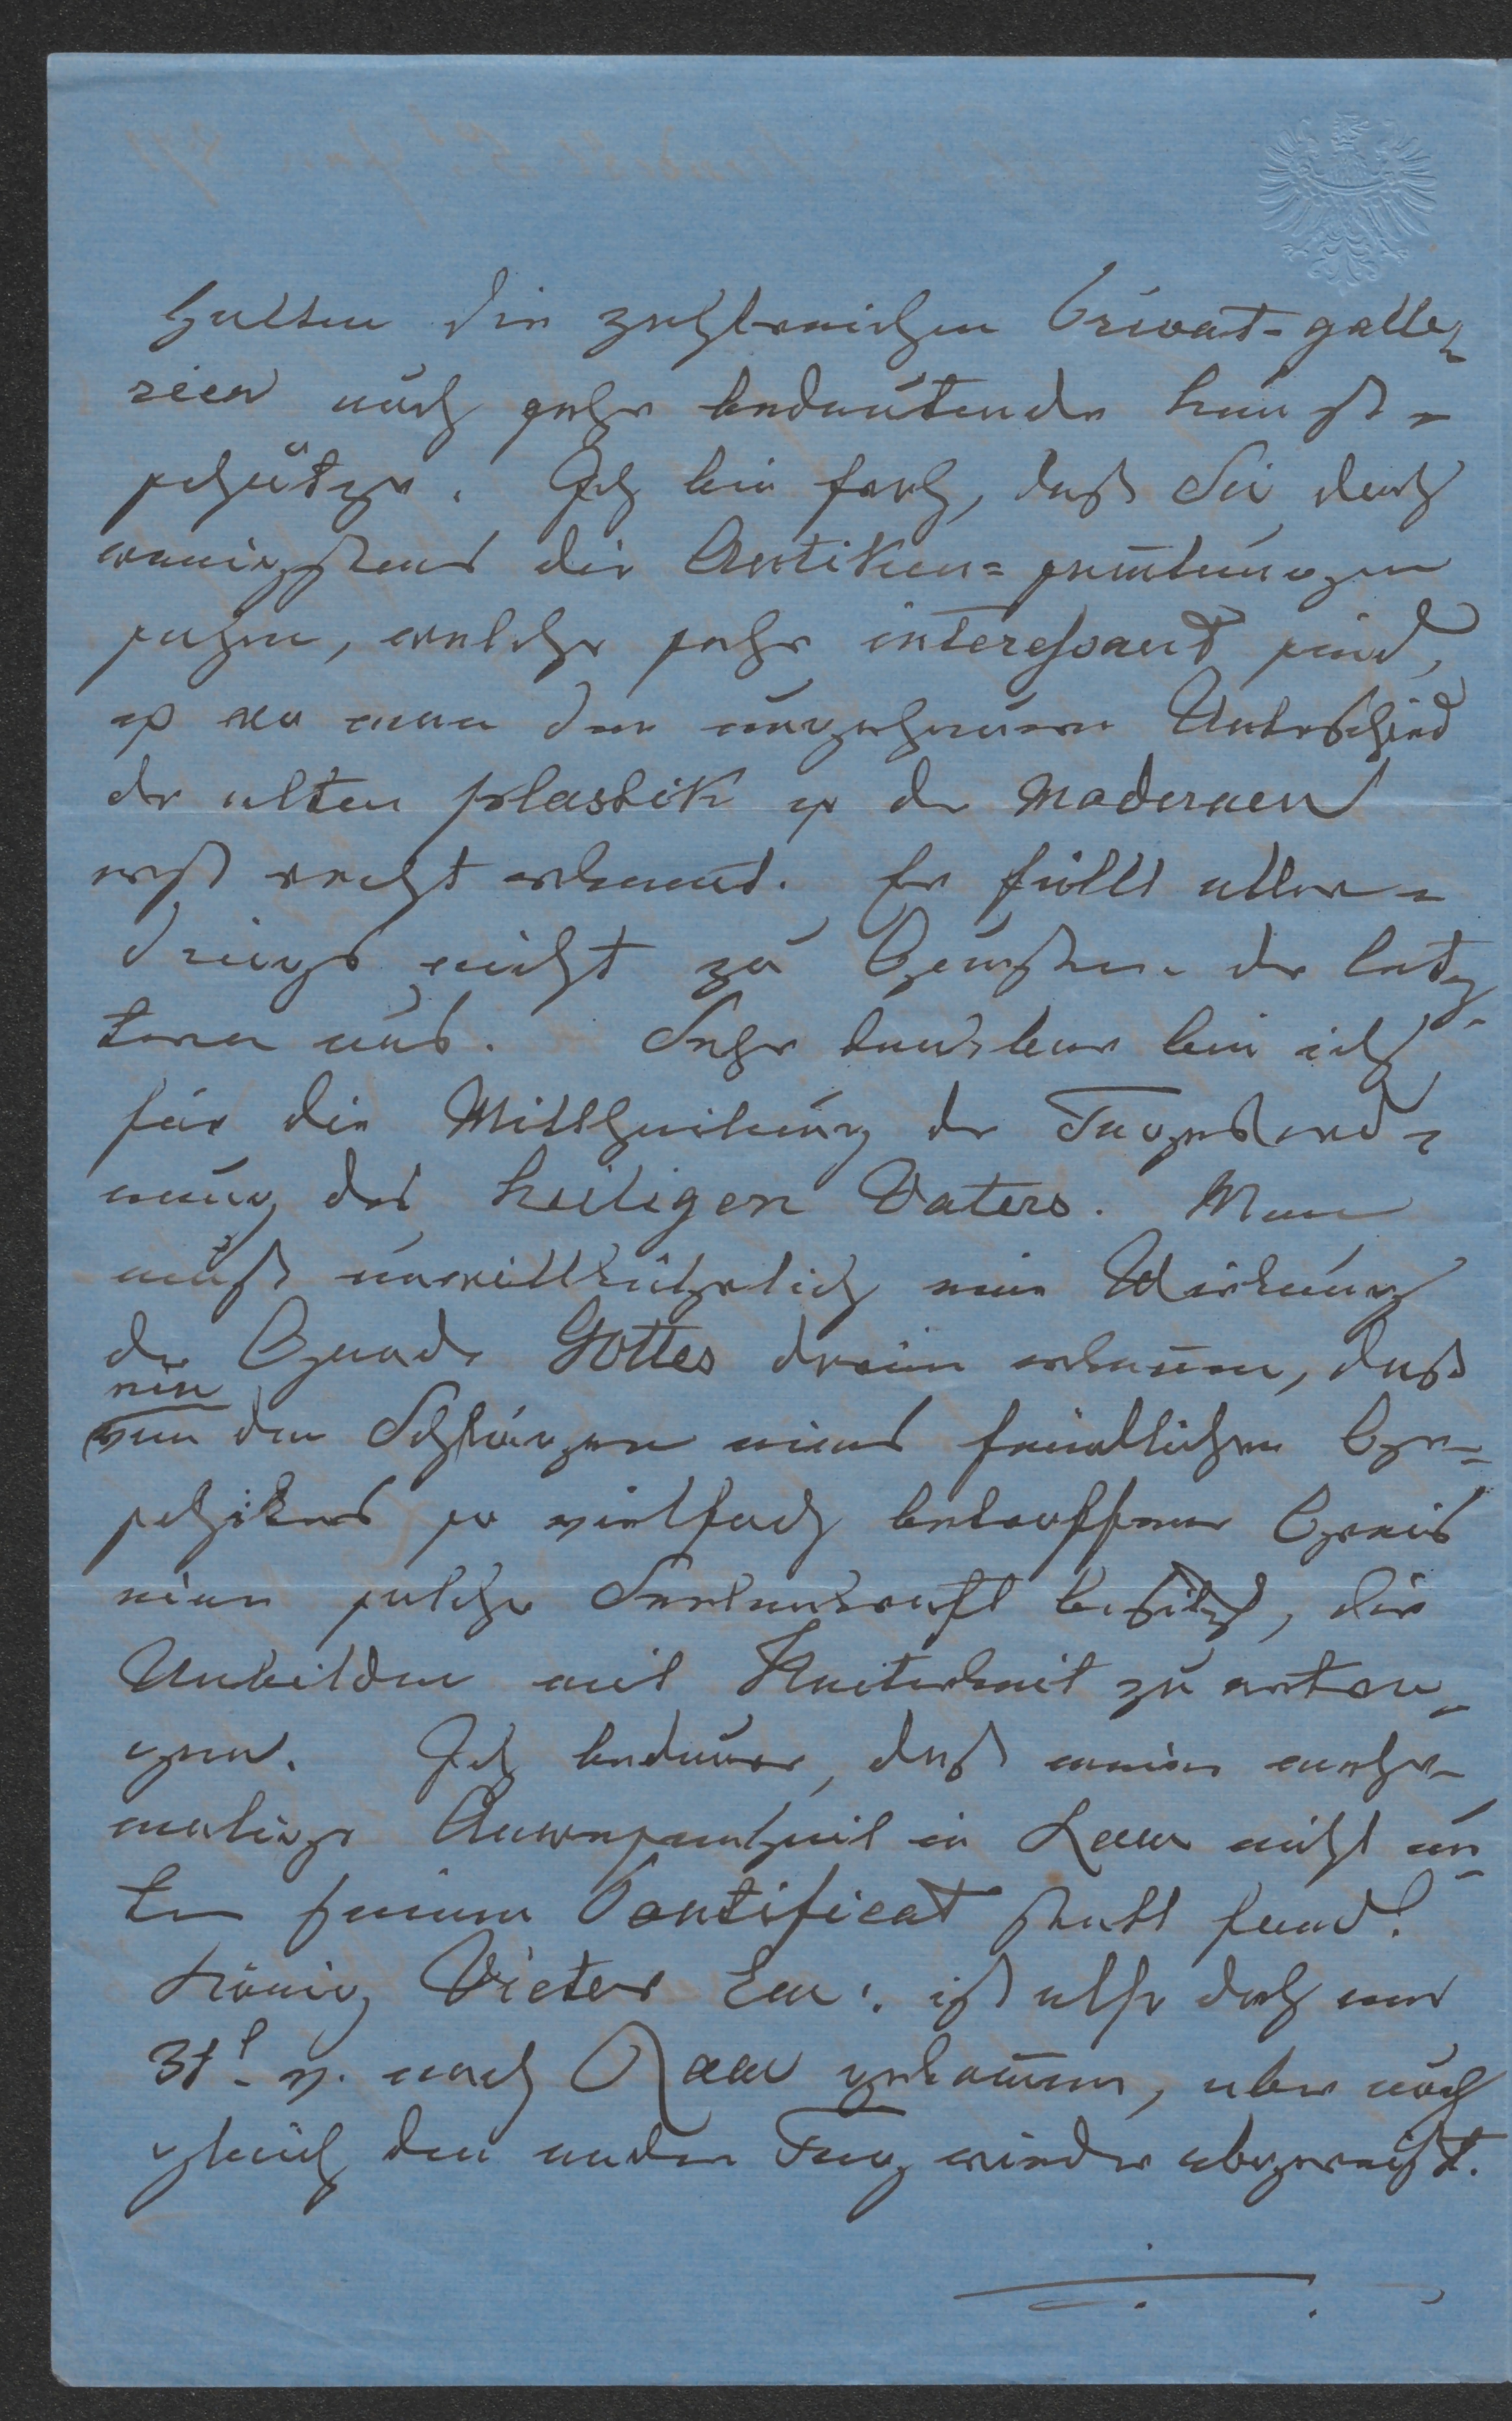 halten die zahlreichen Privat-galle-
rien noch sehr bedeutende Kunst-
schätze. Ich bin froh, daß Sie doch
wenigstens die Antiken-sam̄lungen
sahen, welche sehr interessant sind,
u wo man den ungeheuren Unterschied
der alten plastik u der modernen
erst recht erkennt. Er fällt aller-
dings nicht zu Gunsten der letz-
teren aus. Sehr dankbar bin ich
für die Mittheilung der Tagesord-
nung des heiligen Vaters. Man
muß unwillkührlich eine Wirkung
der Gnade Gottes darin erkennen, daß
ein
von den Schlägen eines feindlichen Ge-
schikes so vielfach betroffener Greis
eine solche Seelenkraft besitzt, die
Unbilden mit Heiterkeit zu ertra-
gen. Ich bedaure, daß meine mehr-
malige Anwesenheit in Rom nicht un-
ter seinem Pontificat statt fand.
König Victor Em. ist also doch am
31t v. nach Rom gekom̄en, aber auch
gleich den andern Tag wieder abgereist.